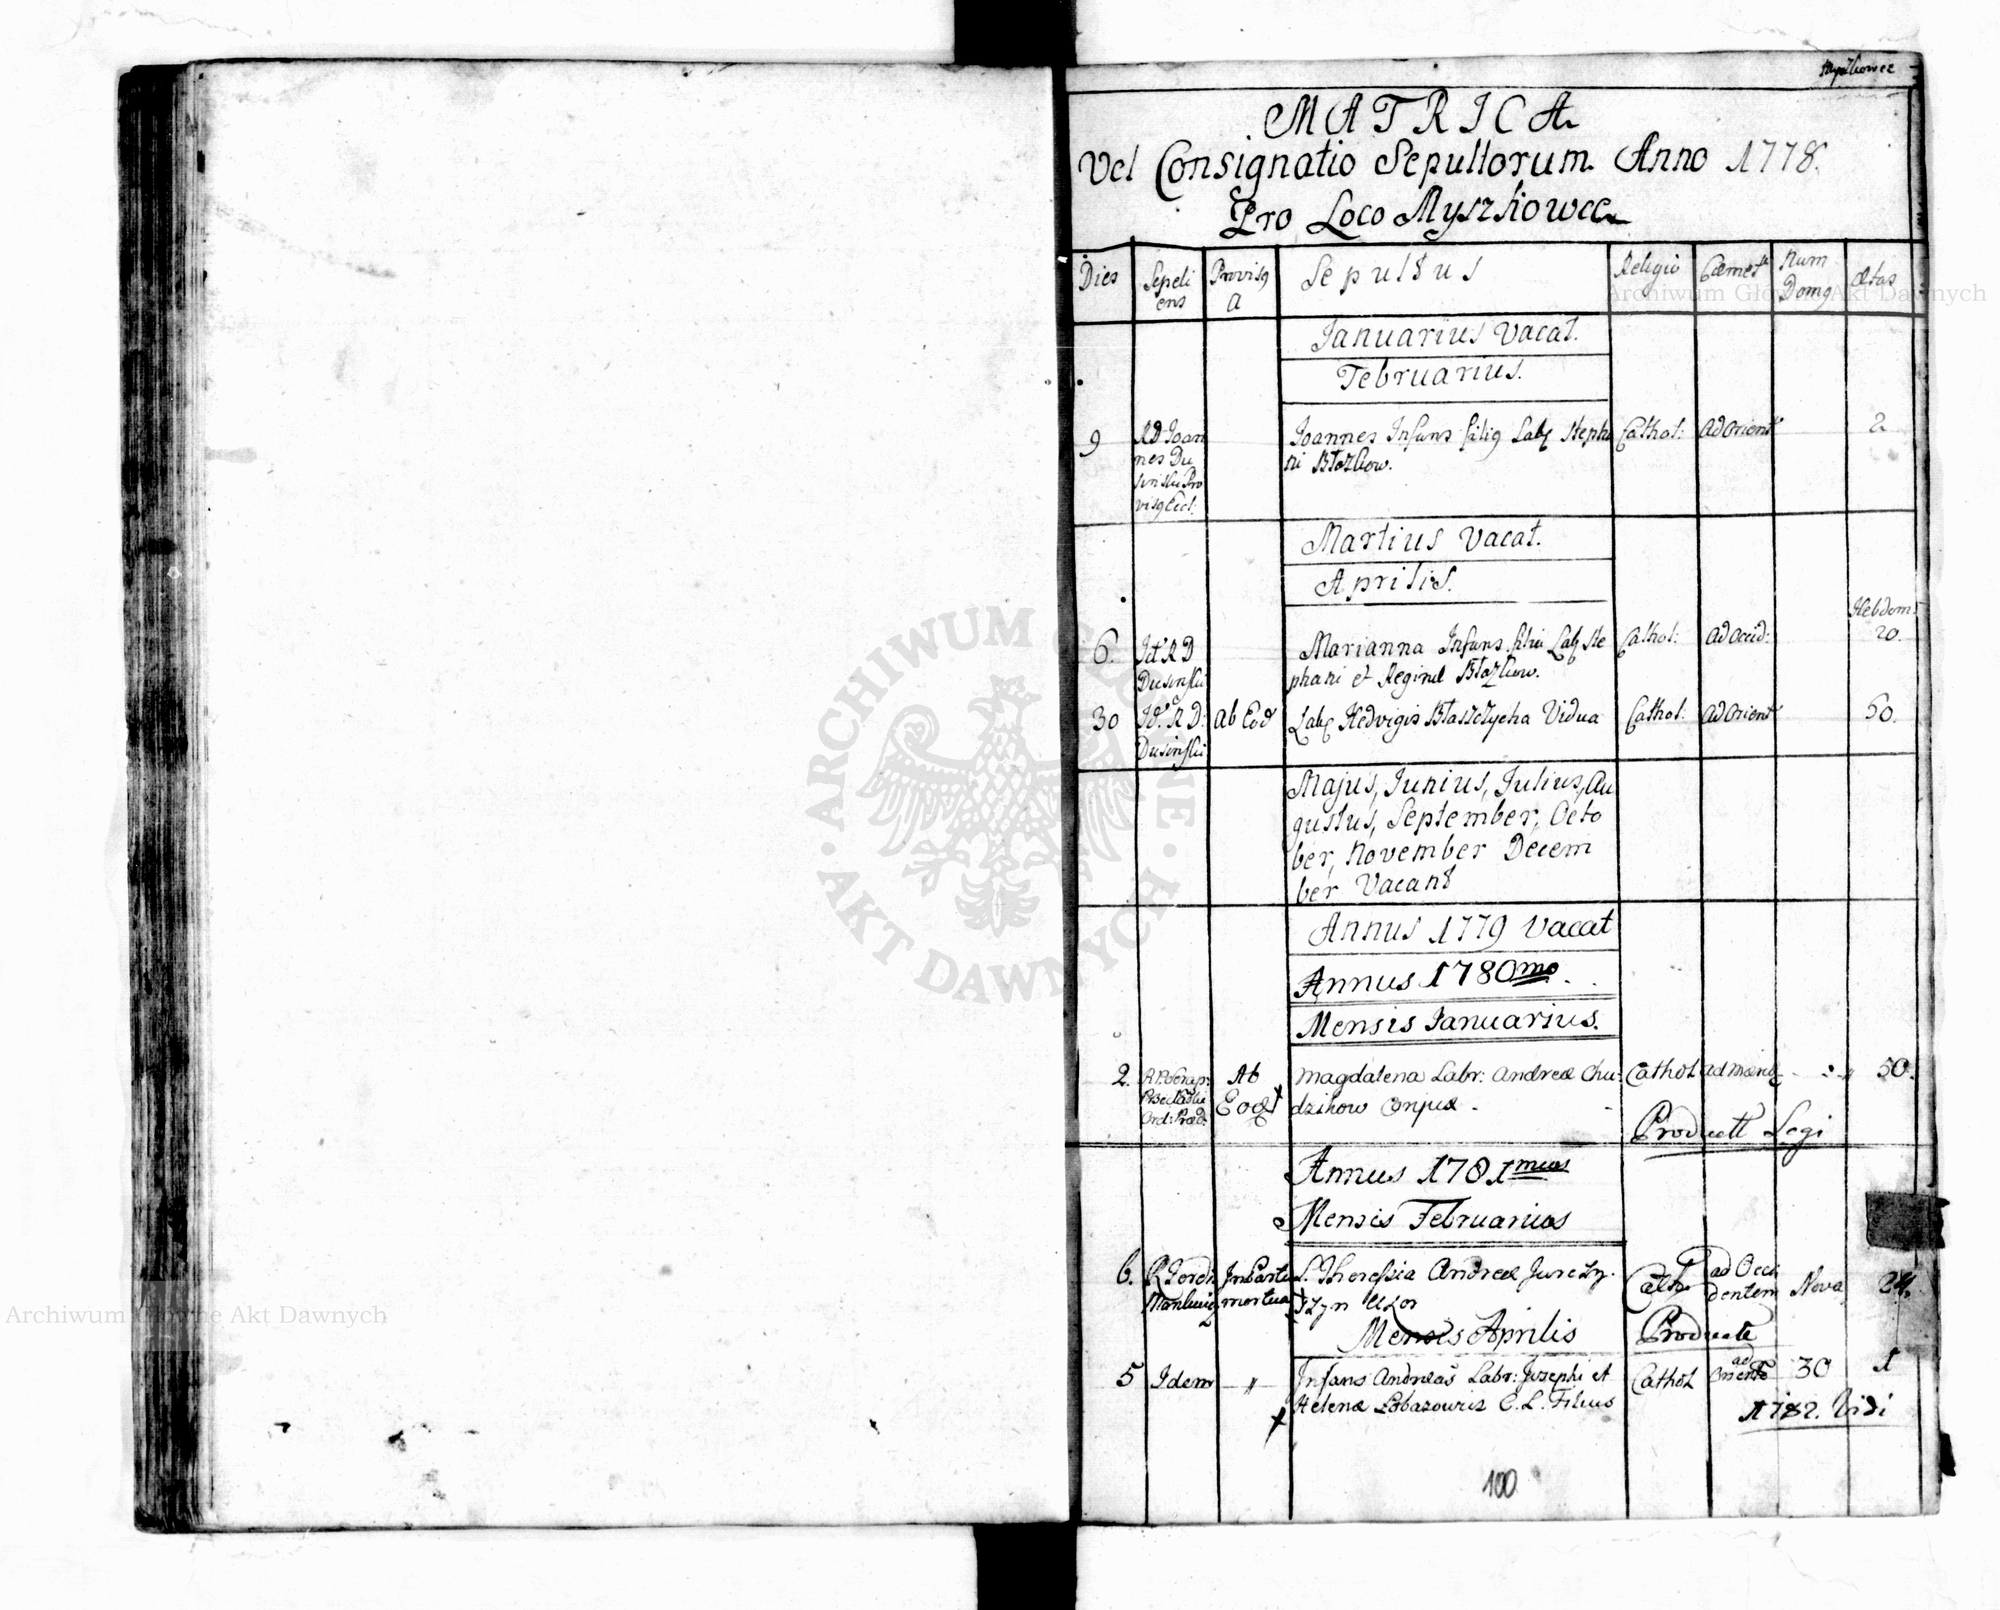 Myszkowce
MATRICA
Vel Consignatio Sepultorum Anno 1778.
Pro Loco Myszkowce
Dies
Sepeli
ens
Provisq
a
Sepultus
Religio
Cæmet
Num
Domq
Ætas
Januarius Vacat.
Februarius.
9
RD Joan
nes Du
sinski Pro
visq Eccl:
Joannes Infans filiq Labq Stepha
ni Błozkow.
Cathol:
Ad Orient
2
Martius Vacat.
Aprilis.
6.
Id RD
Dusinski
Marianna Infans filia Labq Ste
phani et Reginæ Błozkow.
Cathol:
Ad Occid:
Hebdom:
20.
30
Id. RD:
Dusinski
Ab Eod
Labq Hedvigis Błaszczycha Vidua
Cathol:
Ad Orient
60.
Majus, Junius, Julius, Au
gustus, September, Octo
ber, November Decem
ber Vacant
Annus 1779 Vacat
Annus 1780mo.
Mensis Januarius.
2.
Ord: Præd:
Ab
Eod
Magdalena Labr: Andreæ Chu
dzikow Conjux
Cathol
ad
50.
Product Legi
Annus 1781mus
Mensis Februarius
6.
mortua
L. Theressia Andreæ
Uxor
Cath
ad Occi
dentem
Nova
24.
Mensis Aprilis
Producte
5
Idem
"
Infans Andreas Labr: Josephi et
Helenæ C. L. Filius
Cathol
ad
Oriente
30
1
1782. Vidi
100
ARCHIWUM GŁÓWNE AKT DAWNYCH
Archiwum Główne Akt Dawnych
Archiwum Główne Akt Dawnych